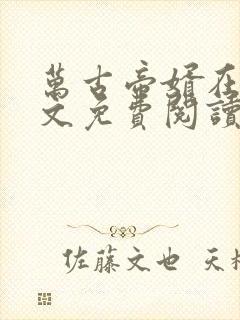 萬古帝婿在
文免費閱讀
佐藤文也 天